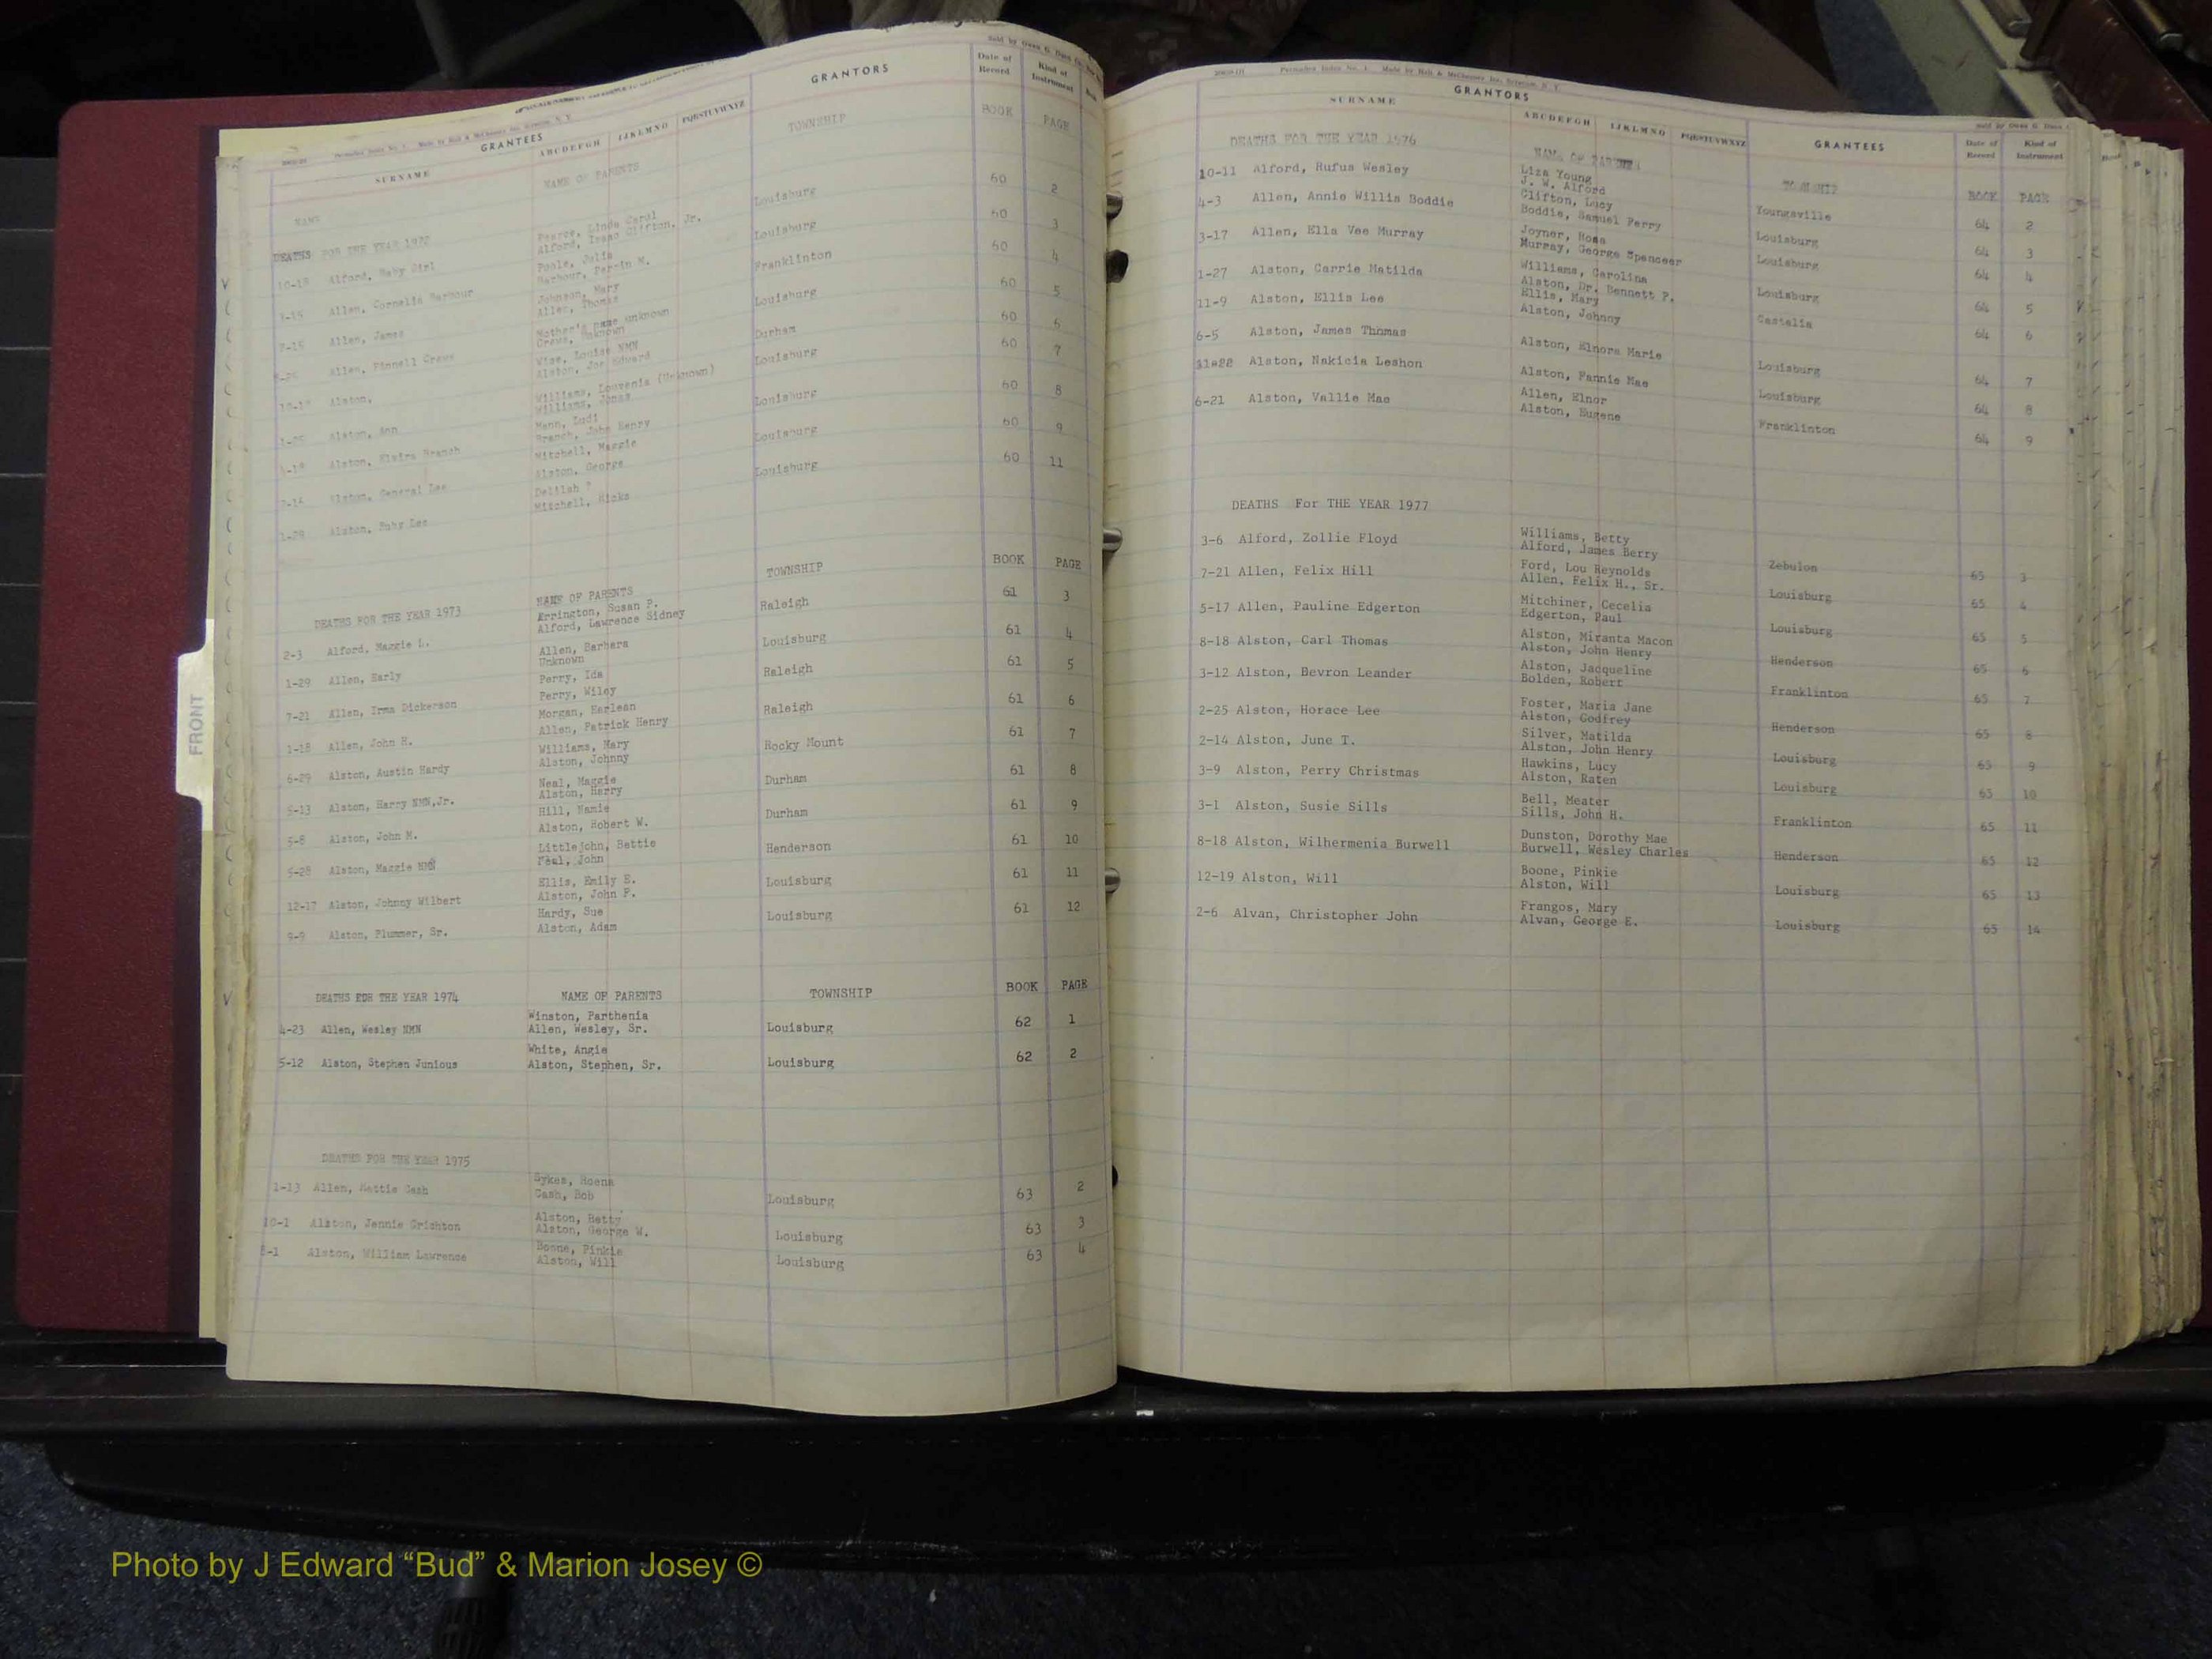 GRANTEES
GRANTORS
Date of Record
Kind of Instrument
SURNAME
ABCDEFGH IJKLMNO PQRSTUVWXYZ
NAME NAME OF PARENTS TOWNSHIP BOOK PAGE
DEATHS FOR THE YEAR 1972
Alford, Baby Girl Pearce, Linda Carol Louisburg 60 2
Alford, Isaac Clifton, Jr.
Allen, Cornelia Barbour Poole, Julia Louisburg 60 3
Barbour, M.
Allen, James Johnson, Mary Franklinton 60 4
Allen, Thomas
Allen, Crews Mother's name unknown Louisburg 60 5
Crews, Unknown
Alston, Vise, Louise NMN Durham 60 6
Alston, Joe Edward
Alston, Ann Williams, Louvenia (Unknown) Louisburg 60 7
Williams, Jonas
Alston, Elvira Branch Mann, Louisburg 60 8
Branch, John Henry
Alston, General Lee Mitchell, Maggie Louisburg 60 9
Alston, George
1-29 Alston, Ruby Lee Delilah ? Louisburg 60 11
Mitchell, Hicks
DEATHS FOR THE YEAR 1973 NAME OF PARENTS TOWNSHIP BOOK PAGE
2-3 Alford, Maggie L. Errington, Susan P. Raleigh 61 3
Alford, Lawrence Sidney
1-29 Allen, Early Allen, Barbara Louisburg 61 4
Unknown
7-21 Allen, Irma Dickerson Perry, Ida Raleigh 61 5
Perry, Wiley
1-18 Allen, John H. Morgan, Earlean Raleigh 61 6
Allen, Patrick Henry
6-29 Alston, Austin Hardy Williams, Mary Rocky Mount 61 7
Alston, Johnny
5-13 Alston, Harry NMN,Jr. Neal, Maggie Durham 61 8
Alston, Harry
5-8 Alston, John M. Hill, Mamie Durham 61 9
Alston, Robert W.
5-28 Alston, Maggie NMN Littlejohn, Bettie Henderson 61 10
Neal, John
12-17 Alston, Johnny Wilbert Ellis, Emily E. Louisburg 61 11
Alston, John P.
9-9 Alston, Plummer, Sr. Hardy, Sue Louisburg 61 12
Alston, Adam
DEATHS FOR THE YEAR 1974 NAME OF PARENTS TOWNSHIP BOOK PAGE
4-23 Allen, Wesley NMN Winston, Parthenia Louisburg 62 1
Allen, Wesley, Sr.
5-12 Alston, Stephen Junious White, Angie Louisburg 62 2
Alston, Stephen, Sr.
DEATHS FOR THE YEAR 1975
1-13 Allen, Mattie Cash Sykes, Roena Louisburg 63 2
Cash, Bob
10-1 Alston, Jennie Crichton Alston, Betty Louisburg 63 3
Alston, George W.
Alston, William Lawrence Boone, Pinkie Louisburg 63 4
Alston, Will
FRONT
GRANTORS
SURNAME
ABCDEFGH IJKLMNO PQRSTUVWXYZ
GRANTEES
Date of Record
Kind of Instrument
DEATHS FOR THE YEAR 1976 NAME OF PARENTS TOWNSHIP BOOK PAGE
10-11 Alford, Rufus Wesley Liza Young Youngsville 64 2
J. W. Alford
4-3 Allen, Annie Willis Boddie Clifton, Lucy Louisburg 64 3
Boddie, Samuel Perry
3-17 Allen, Ella Vee Murray Joyner, Rosa Louisburg 64 4
Murray, George Spenceer
1-27 Alston, Carrie Matilda Williams, Carolina Louisburg 64 5
Alston, Dr. Bennett P.
11-9 Alston, Ellis Lee Ellis, Mary Castalia 64 6
Alston, Johnny
6-5 Alston, James Thomas Alston, Elnora Marie Louisburg 64 7
Alston, Nakicia Leshon Alston, Fannie Mae Louisburg 64 8
6-21 Alston, Vallie Mae Allen, Elnor Franklinton 64 9
Alston, Eugene
DEATHS For THE YEAR 1977
3-6 Alford, Zollie Floyd Williams, Betty Zebulon 65 3
Alford, James Berry
7-21 Allen, Felix Hill Ford, Lou Reynolds Louisburg 65 4
Allen, Felix H., Sr.
5-17 Allen, Pauline Edgerton Mitchiner, Cecelia Louisburg 65 5
Edgerton, Paul
8-18 Alston, Carl Thomas Alston, Miranta Macon Henderson 65 6
Alston, John Henry
3-12 Alston, Bevron Leander Alston, Jacqueline Franklinton 65 7
Bolden, Robert
2-25 Alston, Horace Lee Foster, Maria Jane Henderson 65 8
Alston, Godfrey
2-14 Alston, June T. Silver, Matilda Louisburg 65 9
Alston, John Henry
3-9 Alston, Perry Christmas Hawkins, Lucy Louisburg 65 10
Alston, Raten
3-1 Alston, Susie Sills Bell, Meater Franklinton 65 11
Sills, John H.
8-18 Alston, Wilhermenia Burwell Dunston, Dorothy Mae Henderson 65 12
Burwell, Wesley Charles
12-19 Alston, Will Boone, Pinkie Louisburg 65 13
Alston, Will
2-6 Alvan, Christopher John Frangos, Mary Louisburg 65 14
Alvan, George E.
Photo by J Edward “Bud” & Marion Josey ©